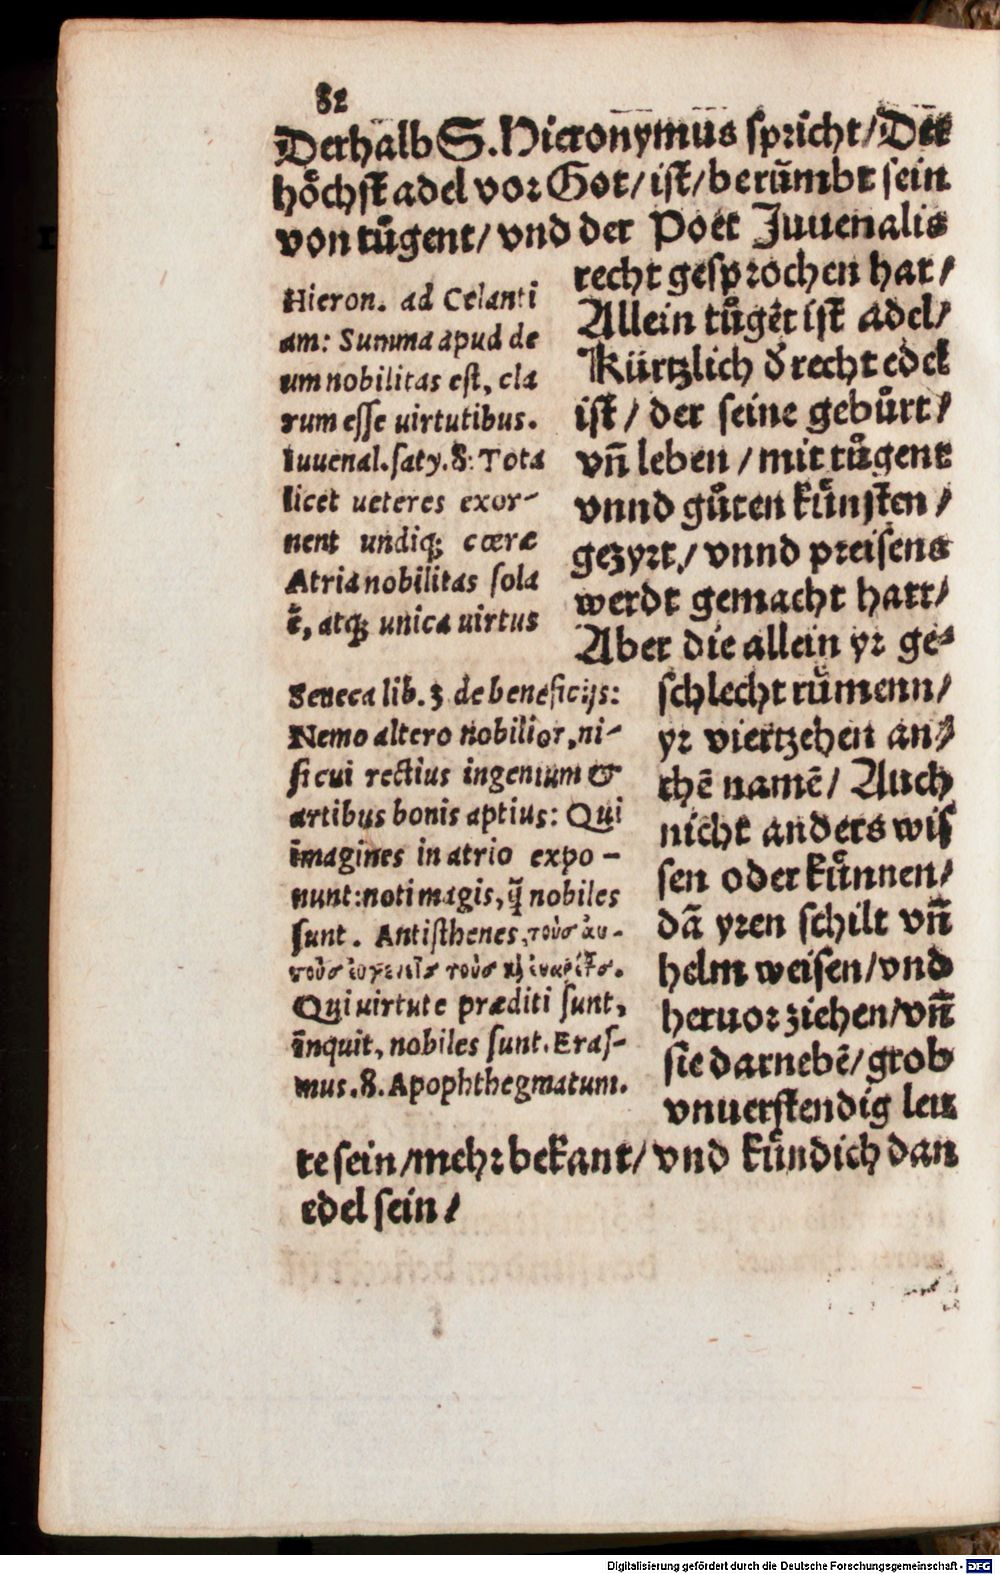 82
Derhalb S. Hieronymus spricht/ Der
hoͤchst adel vor Got/ ist/ beruͤmbt sein
von tuͤgent/ vnd der Poet Juuenalis
recht gesprochen hat/
Allein tuͤgẽt ist adel/
Kürtzlich d̕ recht edel
ist/ der seine gebuͤrt/
vñ leben/ mit tuͤgent
vnnd guͤten kuͤnsten/
gezyrt/ vnnd preisens
werdt gemacht hatt/
Aber die allein yr ge-
schlecht ruͤmenn/
yr viertzehen an/
chẽ namẽ/ Auch
nicht anders wis
sen oder kuͤnnen/
dã yren schilt vñ
helm weisen/ vnd
heruor ziehen/ vñ
sie darnebẽ/ grob
vnuerstendig leu
te sein/ mehr bekant/ vnd kuͤndich dan
edel sein/
Hieron. ad Celanti
am: Summa apud de
um nobilitas est, cla
rum esse uirtutibus.
Iuuenal. saty. 8: Tota
licet ueteres exor-
nent undiq; cœræ
Atria nobilitas sola
ẽ, atq; unica uirtus
Seneca lib. 3 de beneficijs:
Nemo altero nobilior, ni-
si cui rectius ingenium &
artibus bonis aptius: Qui
imagines in atrio expo-
nunt: noti magis, q̃ nobiles
sunt. Antisthenes, τοὺσ αυ-
τοὺσ
Qui uirtute præditi sunt,
inquit, nobiles sunt. Eras-
mus. 8. Apophthegmatum.
Digitalisierung gefördert durch die Deutsche Forschungsgemeinschaft - DFG